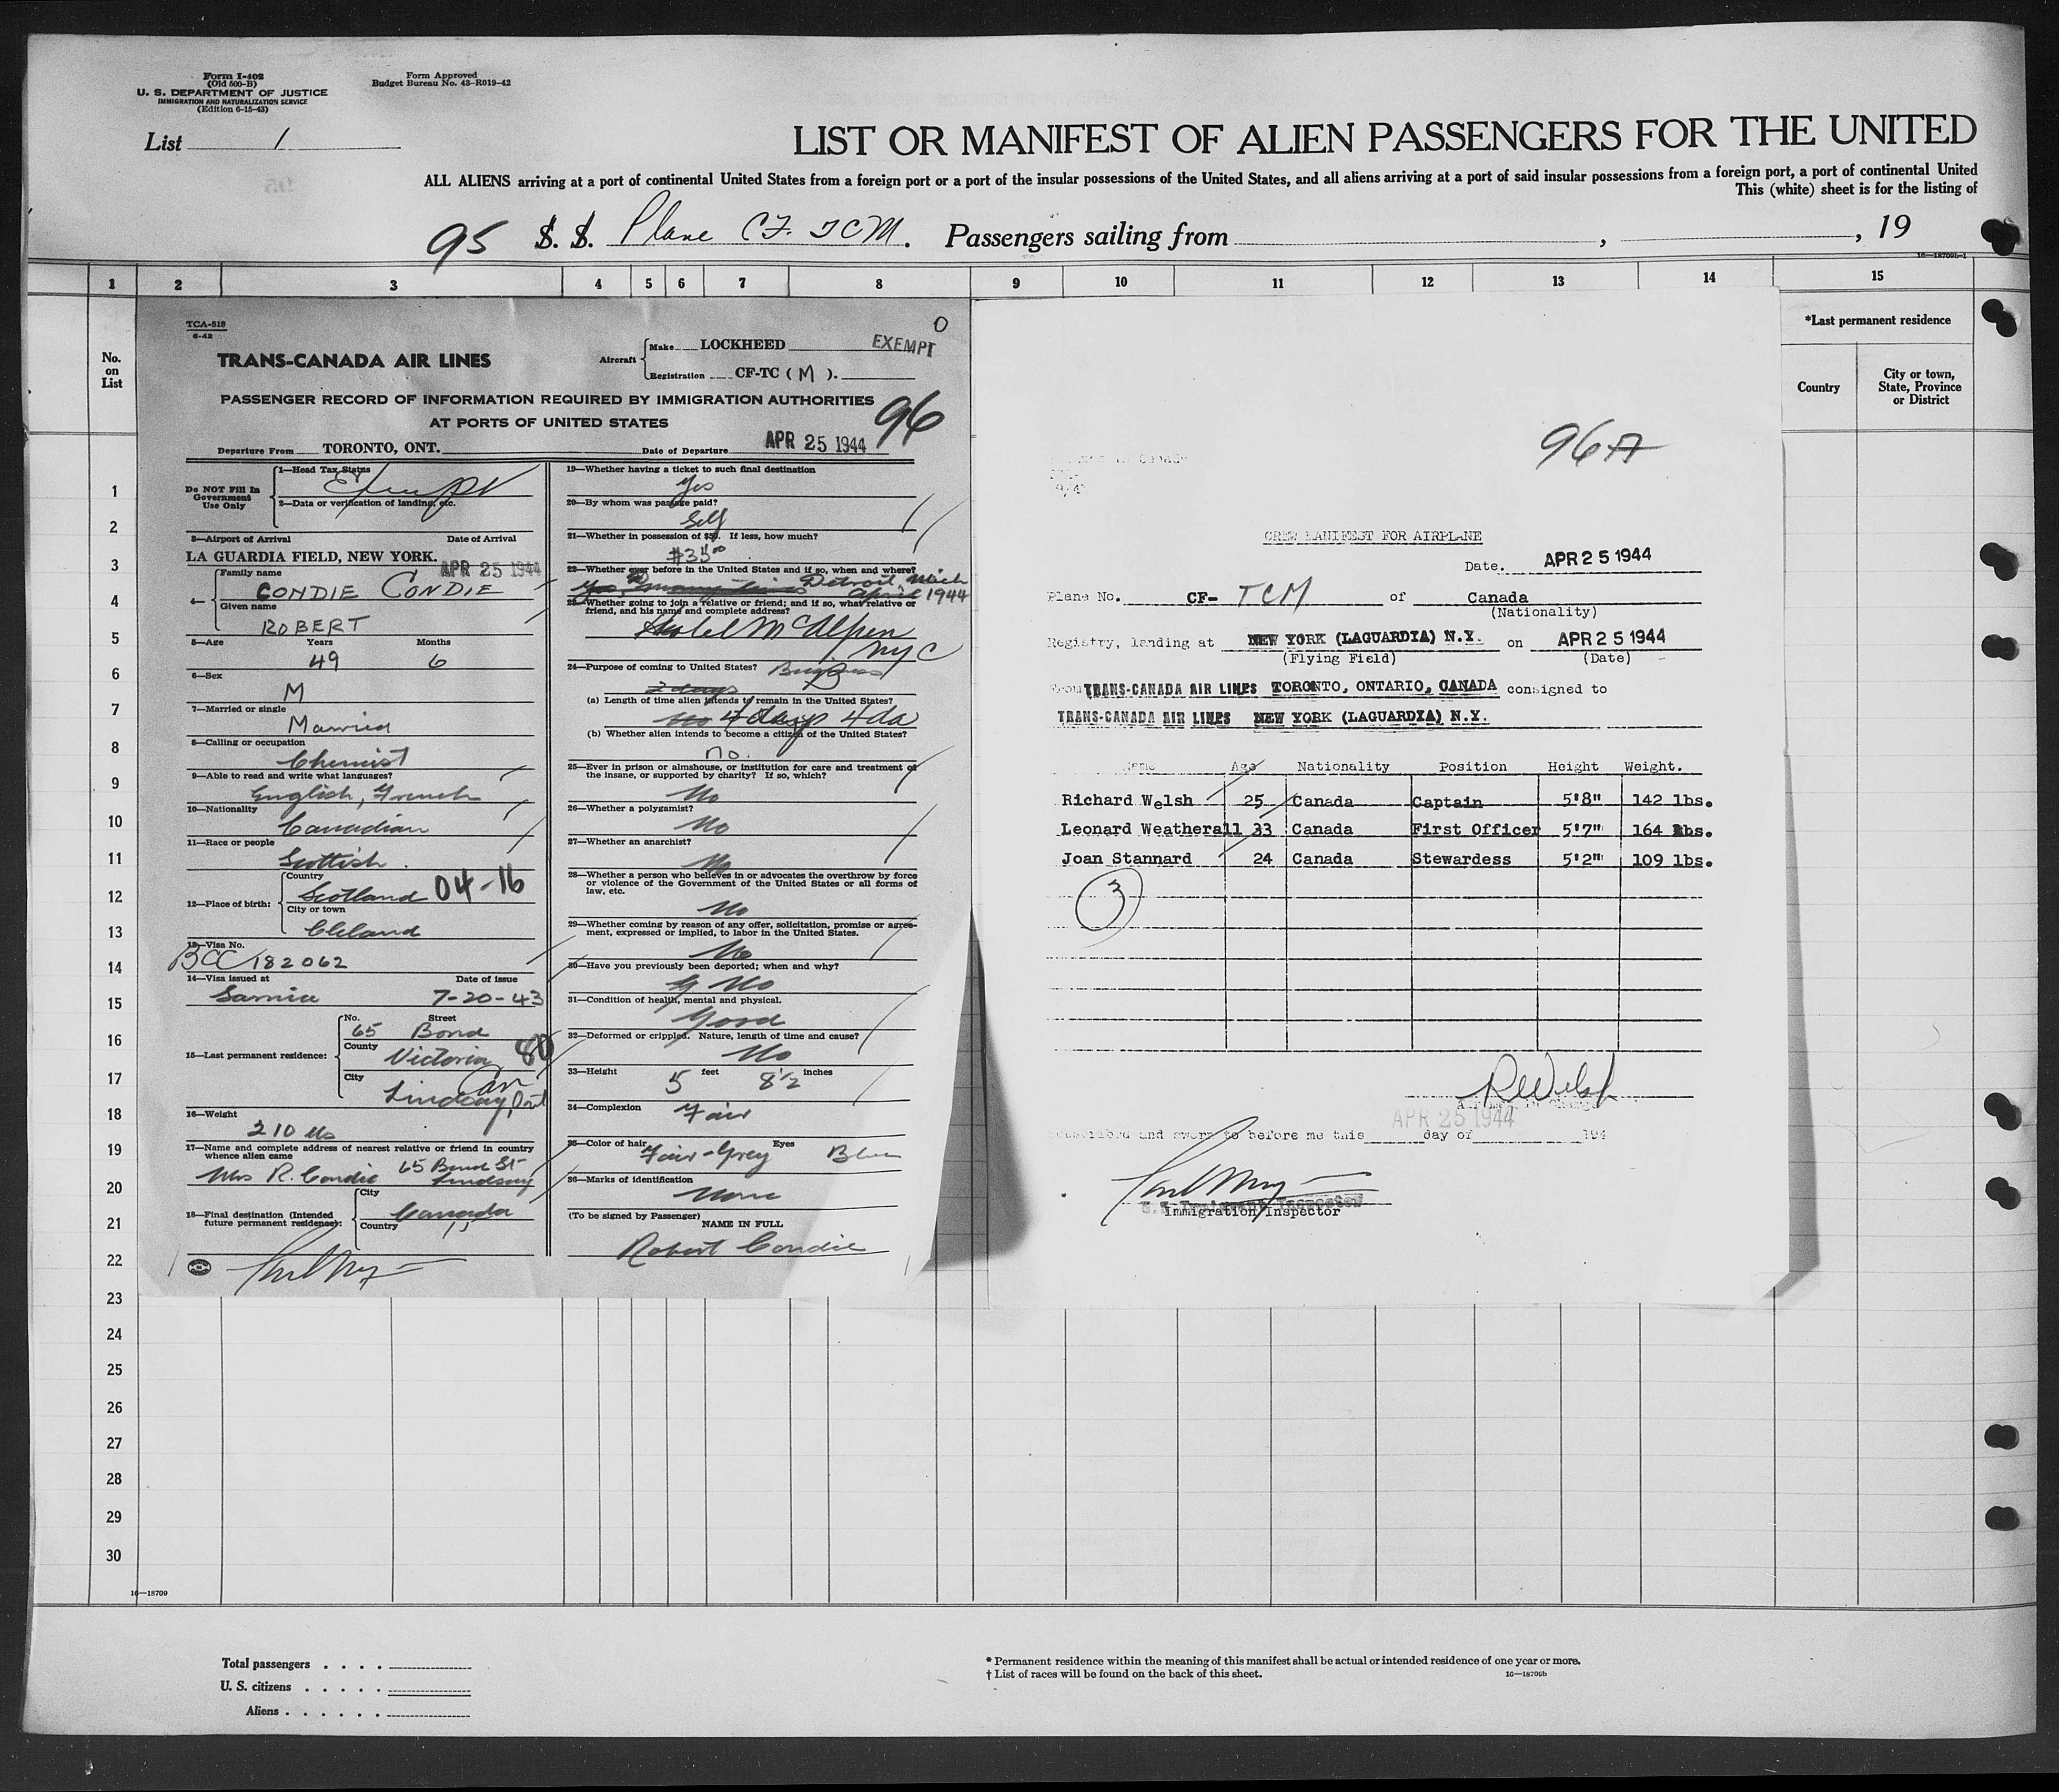 Form I-402
(Old 500-B)
U. S. DEPARTMENT OF JUSTICE
IMMIGRATION AND NATURALIZATION SERVICE
(Edition 6-15-43)
Form Approved
Budget Bureau No. 43-R019-42
List 1
LIST OR MANIFEST OF ALIEN PASSENGERS FOR THE UNITED
ALL ALIENS arriving at a port of continental United States from a foreign port or a port of the insular possessions of the United States, and all aliens arriving at a port of said insular possessions from a foreign port, a port of continental United
This (white) sheet is for the listing of
95 S. S. Plane CF. TCM. Passengers sailing from , , 19
16—18709b-1
1 2 3 4 5 6 7 8 9 10 11 12 13 14 15
No.
on
List
*Last permanent residence
Country
City or town,
State, Province
or District
1
2
3
4
5
6
7
8
9
10
11
12
13
14
15
16
17
18
19
20
21
22
23
24
25
26
27
28
29
30
TCA-518
6-42
TRANS-CANADA AIR LINES
Aircraft
Make LOCKHEED
Registration CF-TC ( M ).
0
EXEMPT
PASSENGER RECORD OF INFORMATION REQUIRED BY IMMIGRATION AUTHORITIES
AT PORTS OF UNITED STATES
96
Departure From TORONTO, ONT. Date of Departure APR 25 1944
Do NOT Fill In
Government
Use Only
1—Head Tax Status
Exempt
2—Data or verification of landing, etc.
3—Airport of Arrival Date of Arrival
LA GUARDIA FIELD, NEW YORK. APR 25 1944
4—
Family name
CONDIE CONDIE
Given name
ROBERT
5—Age Years Months
49 6
6—Sex
M
7—Married or single
Married
8—Calling or occupation
Chemist
9—Able to read and write what languages?
English, French
10—Nationality
Canadian
11—Race or people
Scottish
12—Place of birth:
Country
Scotland 04-16
City or town
Cleland
13—Visa No.
BCC 182062
14—Visa issued at Date of issue
Sarnia 7-20-43
15—Last permanent residence:
No. Street
65 Bond
County
Victoria 80
City
Can
Lindsay, Ont
16—Weight
210 lbs
17—Name and complete address of nearest relative or friend in country
whence alien came
Mrs R. Condie 65 Bond St
Lindsay
18—Final destination (Intended
future permanent residence):
City
Canada
Country
19—Whether having a ticket to such final destination
Yes
20—By whom was passage paid?
Self
21—Whether in possession of $50. If less, how much?
$35.00
22—Whether ever before in the United States and if so, when and where?
Yes, many times Detroit, Mich
April 1944
23—Whether going to join a relative or friend; and if so, what relative or
friend, and his name and complete address?
Hotel McAlpen
NYC
24—Purpose of coming to United States? Business
2 days
(a) Length of time alien intends to remain in the United States?
No 4 days 4 da
(b) Whether alien intends to become a citizen of the United States?
no.
25—Ever in prison or almshouse, or institution for care and treatment of
the insane, or supported by charity? If so, which?
No
26—Whether a polygamist?
No
27—Whether an anarchist?
No
28—Whether a person who believes in or advocates the overthrow by force
or violence of the Government of the United States or all forms of
law, etc.
No
29—Whether coming by reason of any offer, solicitation, promise or agree-
ment, expressed or implied, to labor in the United States.
No
30—Have you previously been deported; when and why?
No
31—Condition of health, mental and physical.
Good
32—Deformed or crippled. Nature, length of time and cause?
No
33—Height 5 feet 8½ inches
34—Complexion
Fair
35—Color of hair Fair-Grey Eyes Blue
36—Marks of identification
None
(To be signed by Passenger)
NAME IN FULL
Robert Condie
96A
CREW MANIFEST FOR AIRPLANE
Date. APR 25 1944
Plane No. CF- TCM of Canada
(Nationality)
Registry, landing at NEW YORK (LAGUARDIA) N.Y. on APR 25 1944
(Flying Field) (Date)
From TRANS-CANADA AIR LINES TORONTO, ONTARIO, CANADA consigned to
TRANS-CANADA AIR LINES NEW YORK (LAGUARDIA) N.Y.
Name Age Nationality Position Height Weight.
Richard Welsh 25 Canada Captain 5'8" 142 lbs.
Leonard Weatherall 33 Canada First Officer 5'7" 164 lbs.
Joan Stannard 24 Canada Stewardess 5'2" 109 lbs.
3
R Welsh
Subscribed and sworn to before me this APR 25 1944 day of 194
U.S. Immigrant Inspector
Immigration Inspector
16—18709
Total passengers . . . .
U. S. citizens . . . . .
Aliens . . . . . .
* Permanent residence within the meaning of this manifest shall be actual or intended residence of one year or more.
† List of races will be found on the back of this sheet. 16—18709b